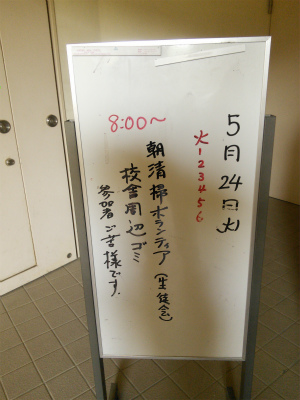 5月24日(火)
火123456
8:00〜
朝清掃ボランティア(生徒会)
校舎周辺ゴミ
参加者ご苦労様です。